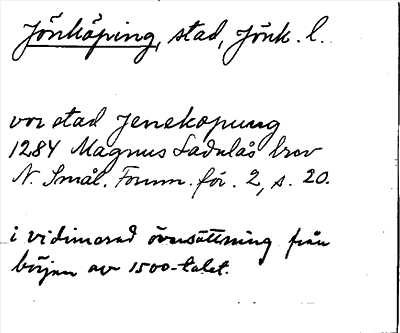 Jönköping, stad, Jönk. l.
vor stad Jenekopung
1284 Magnus Ladulås brev
N. Smål. Fornm. för. 2, s. 20.
i vidimerad översättning från
början av 1500-talet.